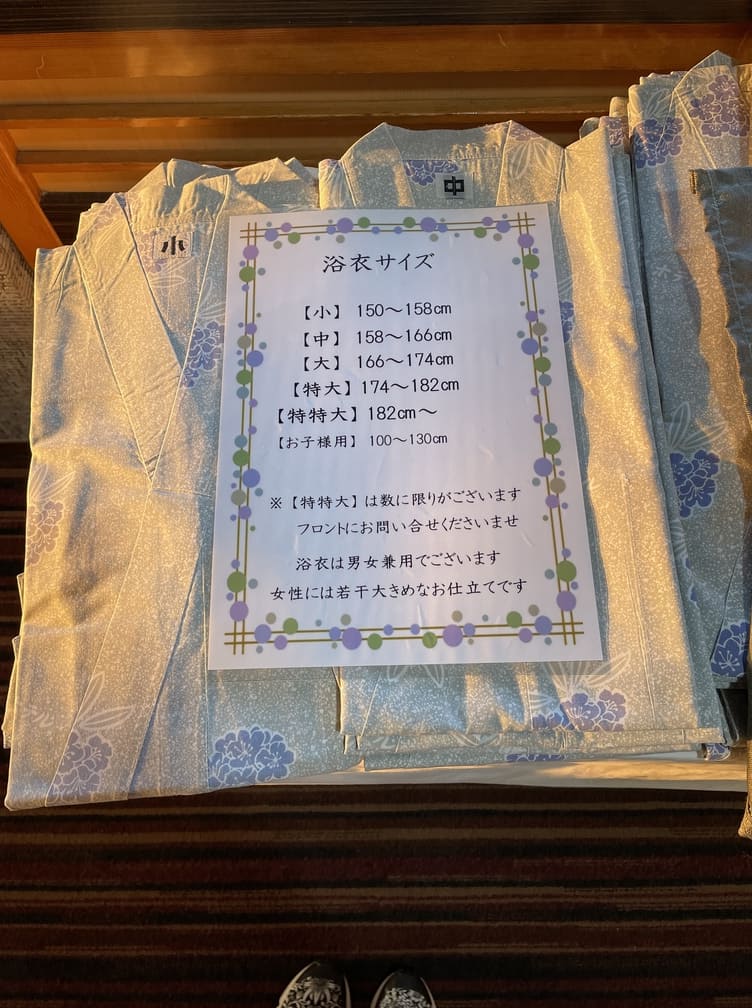 中
小
浴衣サイズ
【小】 150～158㎝
【中】 158～166㎝
【大】 166～174㎝
【特大】 174～182㎝
【特特大】 182㎝～
【お子様用】 100～130㎝
※【特特大】は数に限りがございます
フロントにお問い合せくださいませ
浴衣は男女兼用でございます
女性には若干大きめなお仕立てです